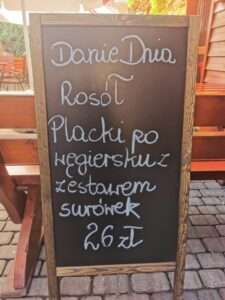 Danie Dnia
Rosół
Placki po
węgiersku z
zestawem
surówek
26 zł